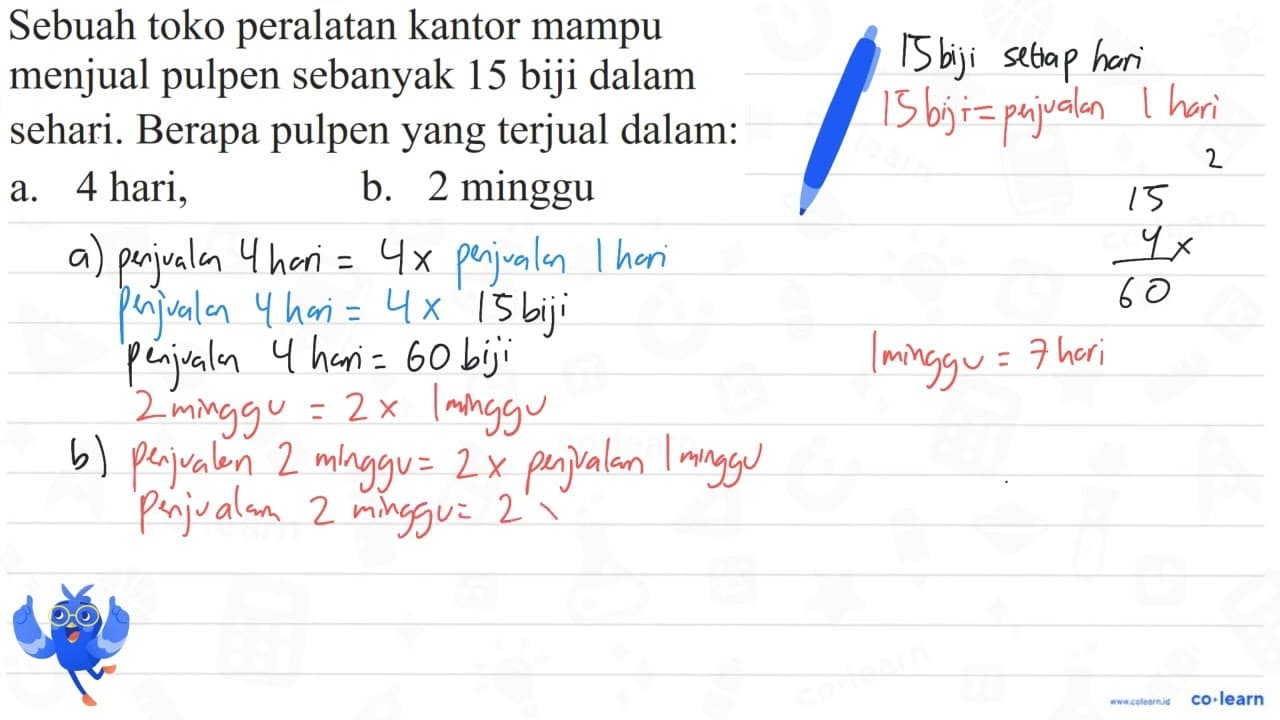 Sebuah toko peralatan kantor mampu
menjual pulpen sebanyak 15 biji dalam
sehari. Berapa pulpen yang terjual dalam:
a. 4 hari, b. 2 minggu
15 biji setiap hari
15 biji = penjualan 1 hari
2
15
4 x
60
a) penjualan 4 hari = 4 x penjualan 1 hari
penjualan 4 hari = 4 x 15 biji
penjualan 4 hari = 60 biji
1 minggu = 7 hari
2 minggu = 2 x 1 minggu
b) penjualan 2 minggu = 2 x penjualan 1 minggu
penjualan 2 minggu = 2 \
www.colearn.id co·learn